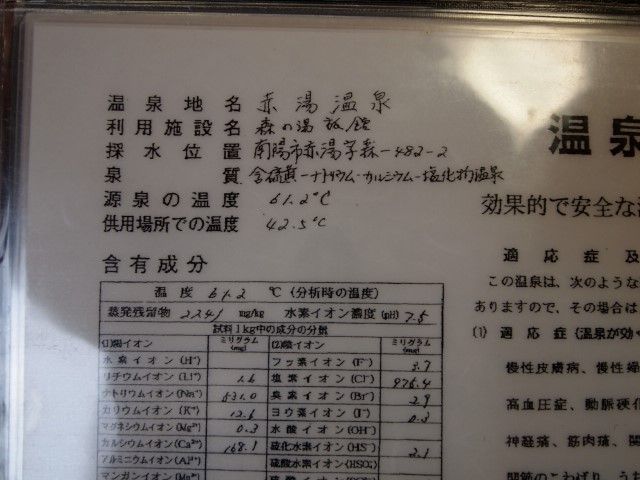 温泉地名 赤湯温泉
利用施設名 森の湯旅館
採水位置 南陽市赤湯字森一482-2
泉質 含硫黄-ナトリウム-カルシウム-塩化物温泉
源泉の温度 61.2℃
供用場所での温度 42.5℃
含有成分
温度 61.2 ℃(分析時の温度)
蒸発残留物 2241 mg/kg 水素イオン濃度(pH) 7.5
試料1kg中の成分の分量
(1)陽イオン ミリグラム(mg) (2)陰イオン ミリグラム(mg)
水素イオン(H⁺) フッ素イオン(F⁻) 3.7
リチウムイオン(Li⁺) 1.6 塩素イオン(Cl⁻) 976.4
ナトリウムイオン(Na⁺) 531.0 臭素イオン(Br⁻) 2.9
カリウムイオン(K⁺) 12.6 ヨウ素イオン(I⁻) 0.3
マグネシウムイオン(Mg²⁺) 0.3 水酸イオン(OH⁻)
カルシウムイオン(Ca²⁺) 168.1 硫化水素イオン(HS⁻) 2.1
アルミニウムイオン(Al³⁺) 硫酸水素イオン(HSO₄⁻)
マンガンイオン
温泉
効果的で安全な
適応症及
この温泉は、次のような
ありますので、その場合は
(1) 適応症(温泉が効
慢性皮膚病、慢性
高血圧症、動脈硬化
神経痛、筋肉痛、
関節のこわばり、うち